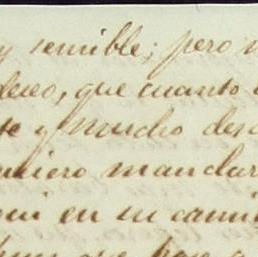 y sensible; pero
deseo, que cuanto
te y mucho des
quiero mandar
qui en su cami
que